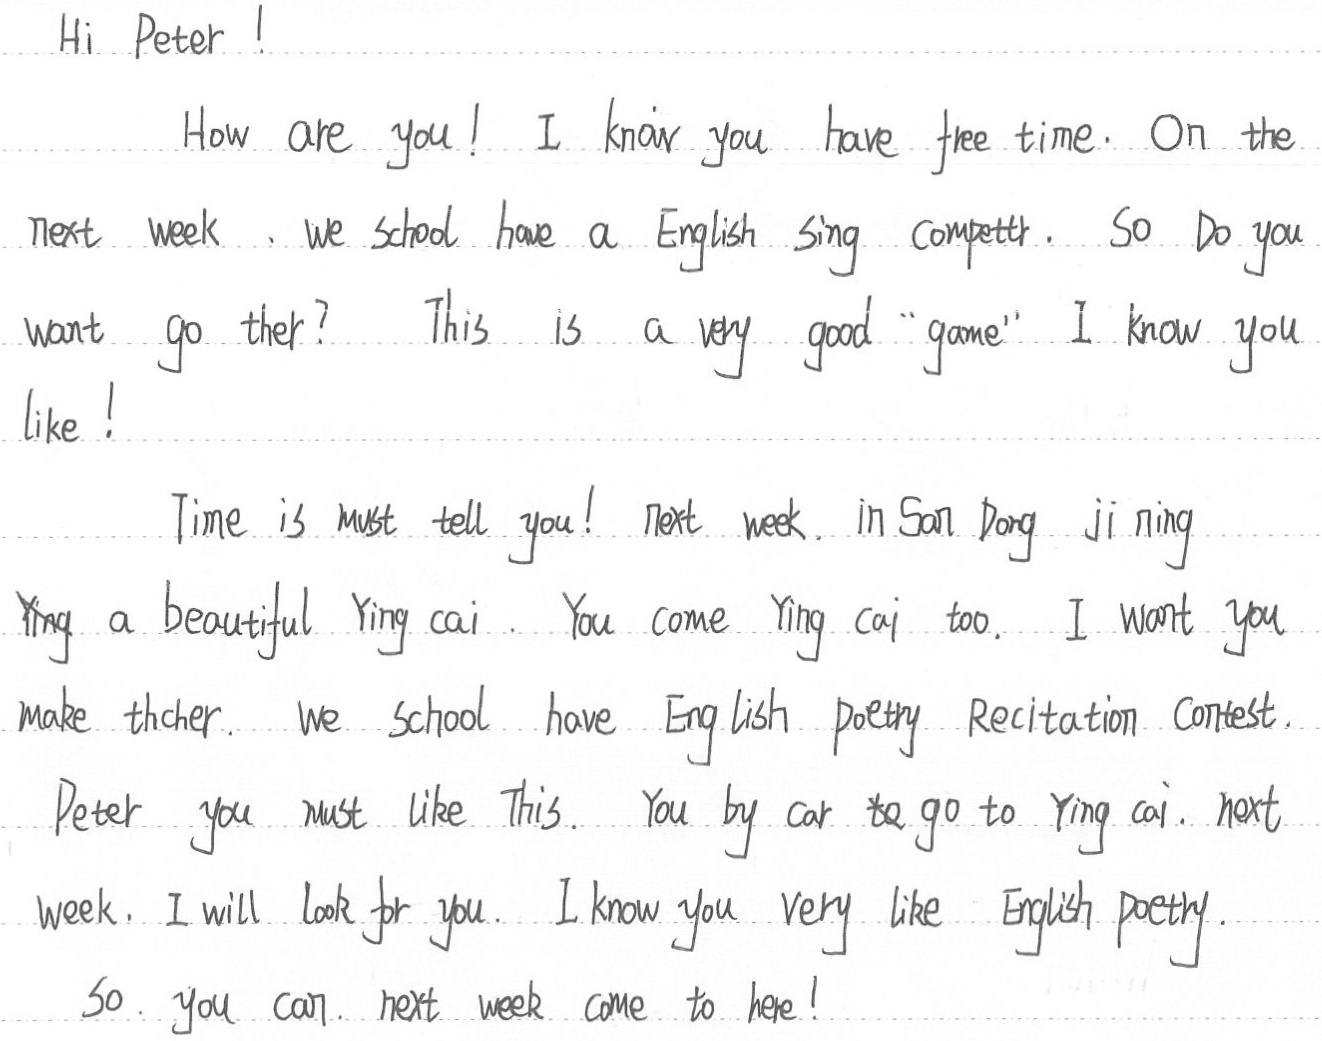 Hi Peter !
How are you! I know you have free time. On the
next week . we school have a English sing compettr. So Do you
want go ther? This is a very good "game" I know you
like !
Time is must tell you! next week. in San Dong ji ning
a beautiful Ying cai . You come Ying cai too. I want you
make thcher. We school have English poetry Recitation Contest.
Peter you must like This. You by car go to Ying cai. next
week. I will look for you. I know you very like English poetry.
So. you can. next week come to here!